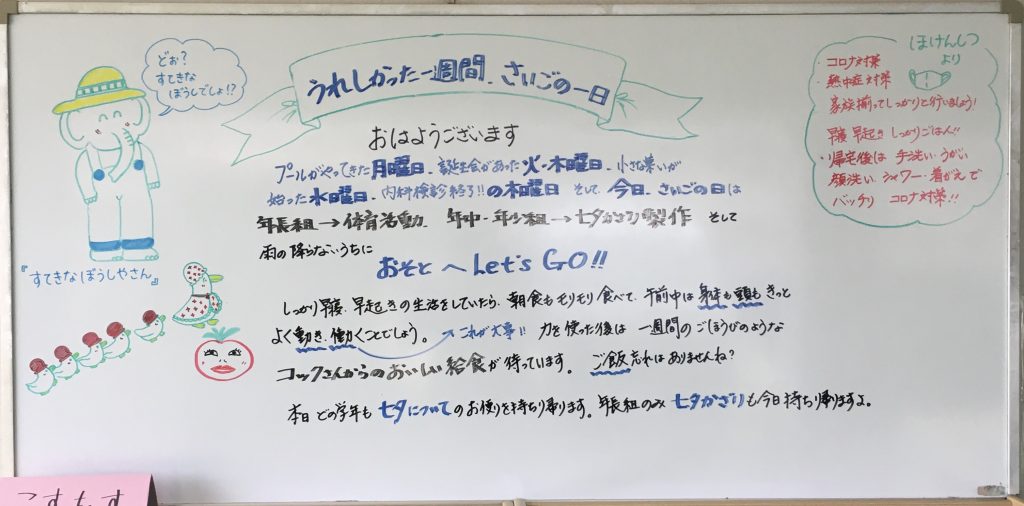 うれしかった一週間、さいごの一日
どぉ?
すてきな
ぼうしでしょ!?
『すてきなぼうしやさん』
おはようございます
プールがやってきた月曜日、誕生会があった火・木曜日、小さな集いが
始った水曜日、内科検診終了!!の木曜日 そして、今日、さいごの日は
年長組→体育活動、年中・年少組→七夕かざり製作 そして
雨の降らないうちに
おそとへ Let's GO!!
しっかり早寝、早起きの生活をしていたら、朝食もモリモリ食べて、午前中は身体も頭もきっと
よく動き、働くことでしょう。 これが大事!! 力を使った後は 一週間のごほうびのような
コックさんからのおいしい給食が待っています。 ご飯忘れはありませんね?
本日 どの学年も 七夕についてのお便りを持ち帰ります。年長組のみ 七夕かざりも今日持ち帰りますよ。
ほけんしつ
より
・コロナ対策
・熱中症対策
家族揃ってしっかりと行いましょう!
早寝 早起き しっかりごはん!!
・帰宅後は 手洗い・うがい
顔洗い・シャワー・着がえで
バッチリ コロナ対策!!
こすもす